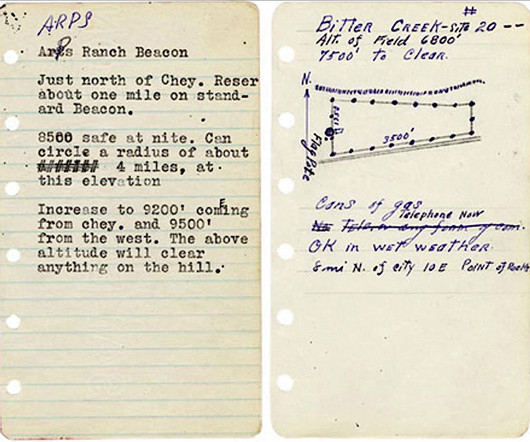 ARPS
Arps Ranch Beacon
Just north of Chey. Reser
about one mile on stand-
ard Beacon.
8500 safe at nite. Can
circle a radius of about
4 miles, at
this elevation
Increase to 9200' comEng
from chey. and 9500'
from the west. The above
altitude will clear
anything on the hill.
Bitter Creek - Site # 20 --
Alt. of Field 6800'
7500' to Clear.
N.
3500'
Flag Pole
Cans of gas
Telephone Now
No Tele. or any form of com.
OK in wet weather
8 mi N. of city 10 E Point of Rocks